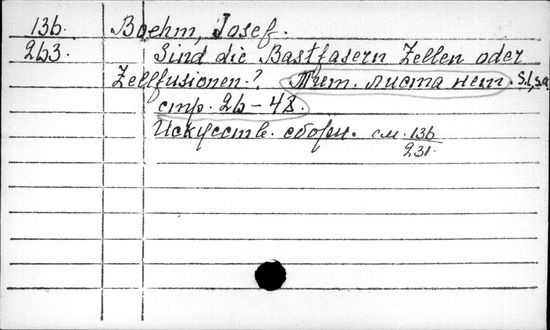 136. Boehm, Josef.
263. Sind die Bastfasern Zellen oder
Zellfusionen? Тит. листа нет. S.l., s.a.
стр. 26-48.
Искусств. сборн. см. 136
231.